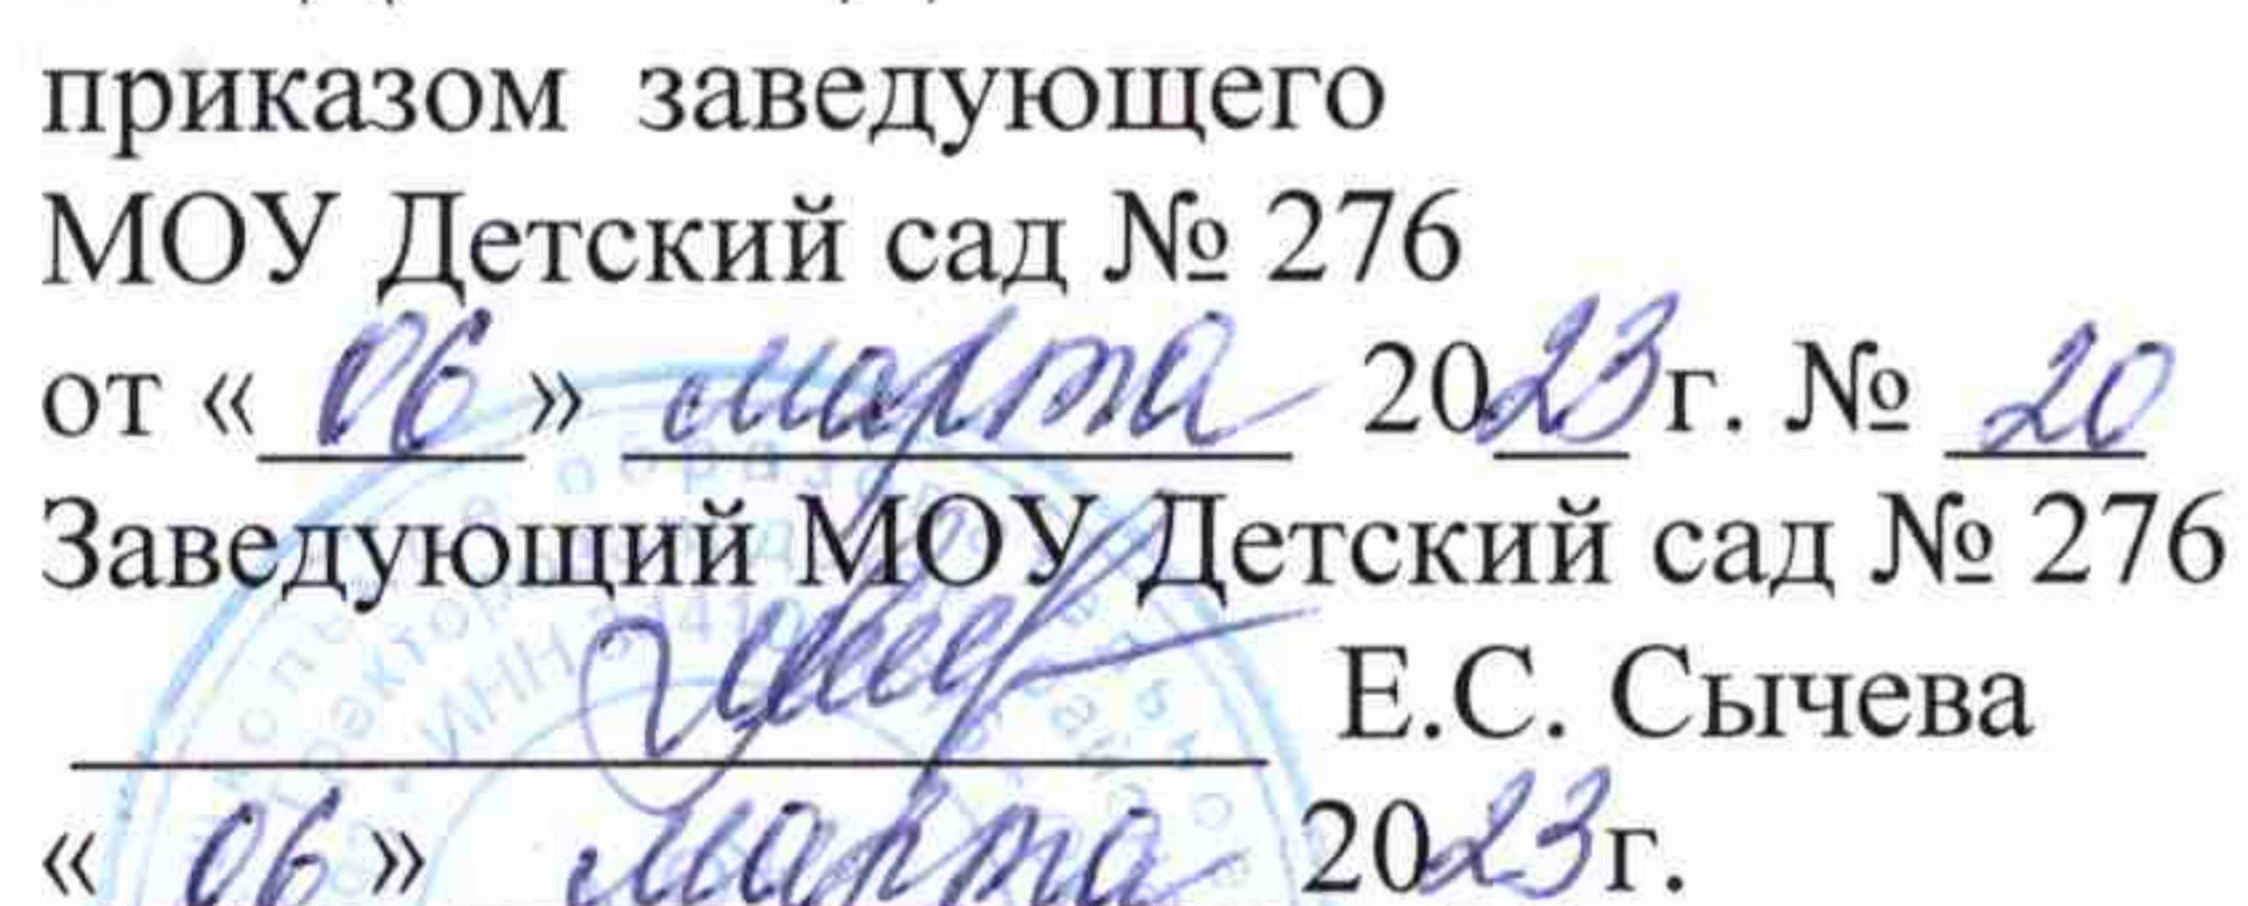 приказом заведующего
МОУ Детский сад № 276
от « 06 » марта 2023г. № 20
Заведующий МОУ Детский сад № 276
Е.С. Сычева
« 06 » марта 2023г.